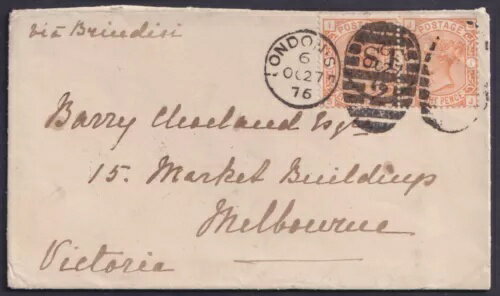 via Brindisi
LONDON S.E
6
OC 27
76
POSTAGE
POSTAGE
PENCE
Barry Esqre
15. Market Buildings
Melbourne
Victoria